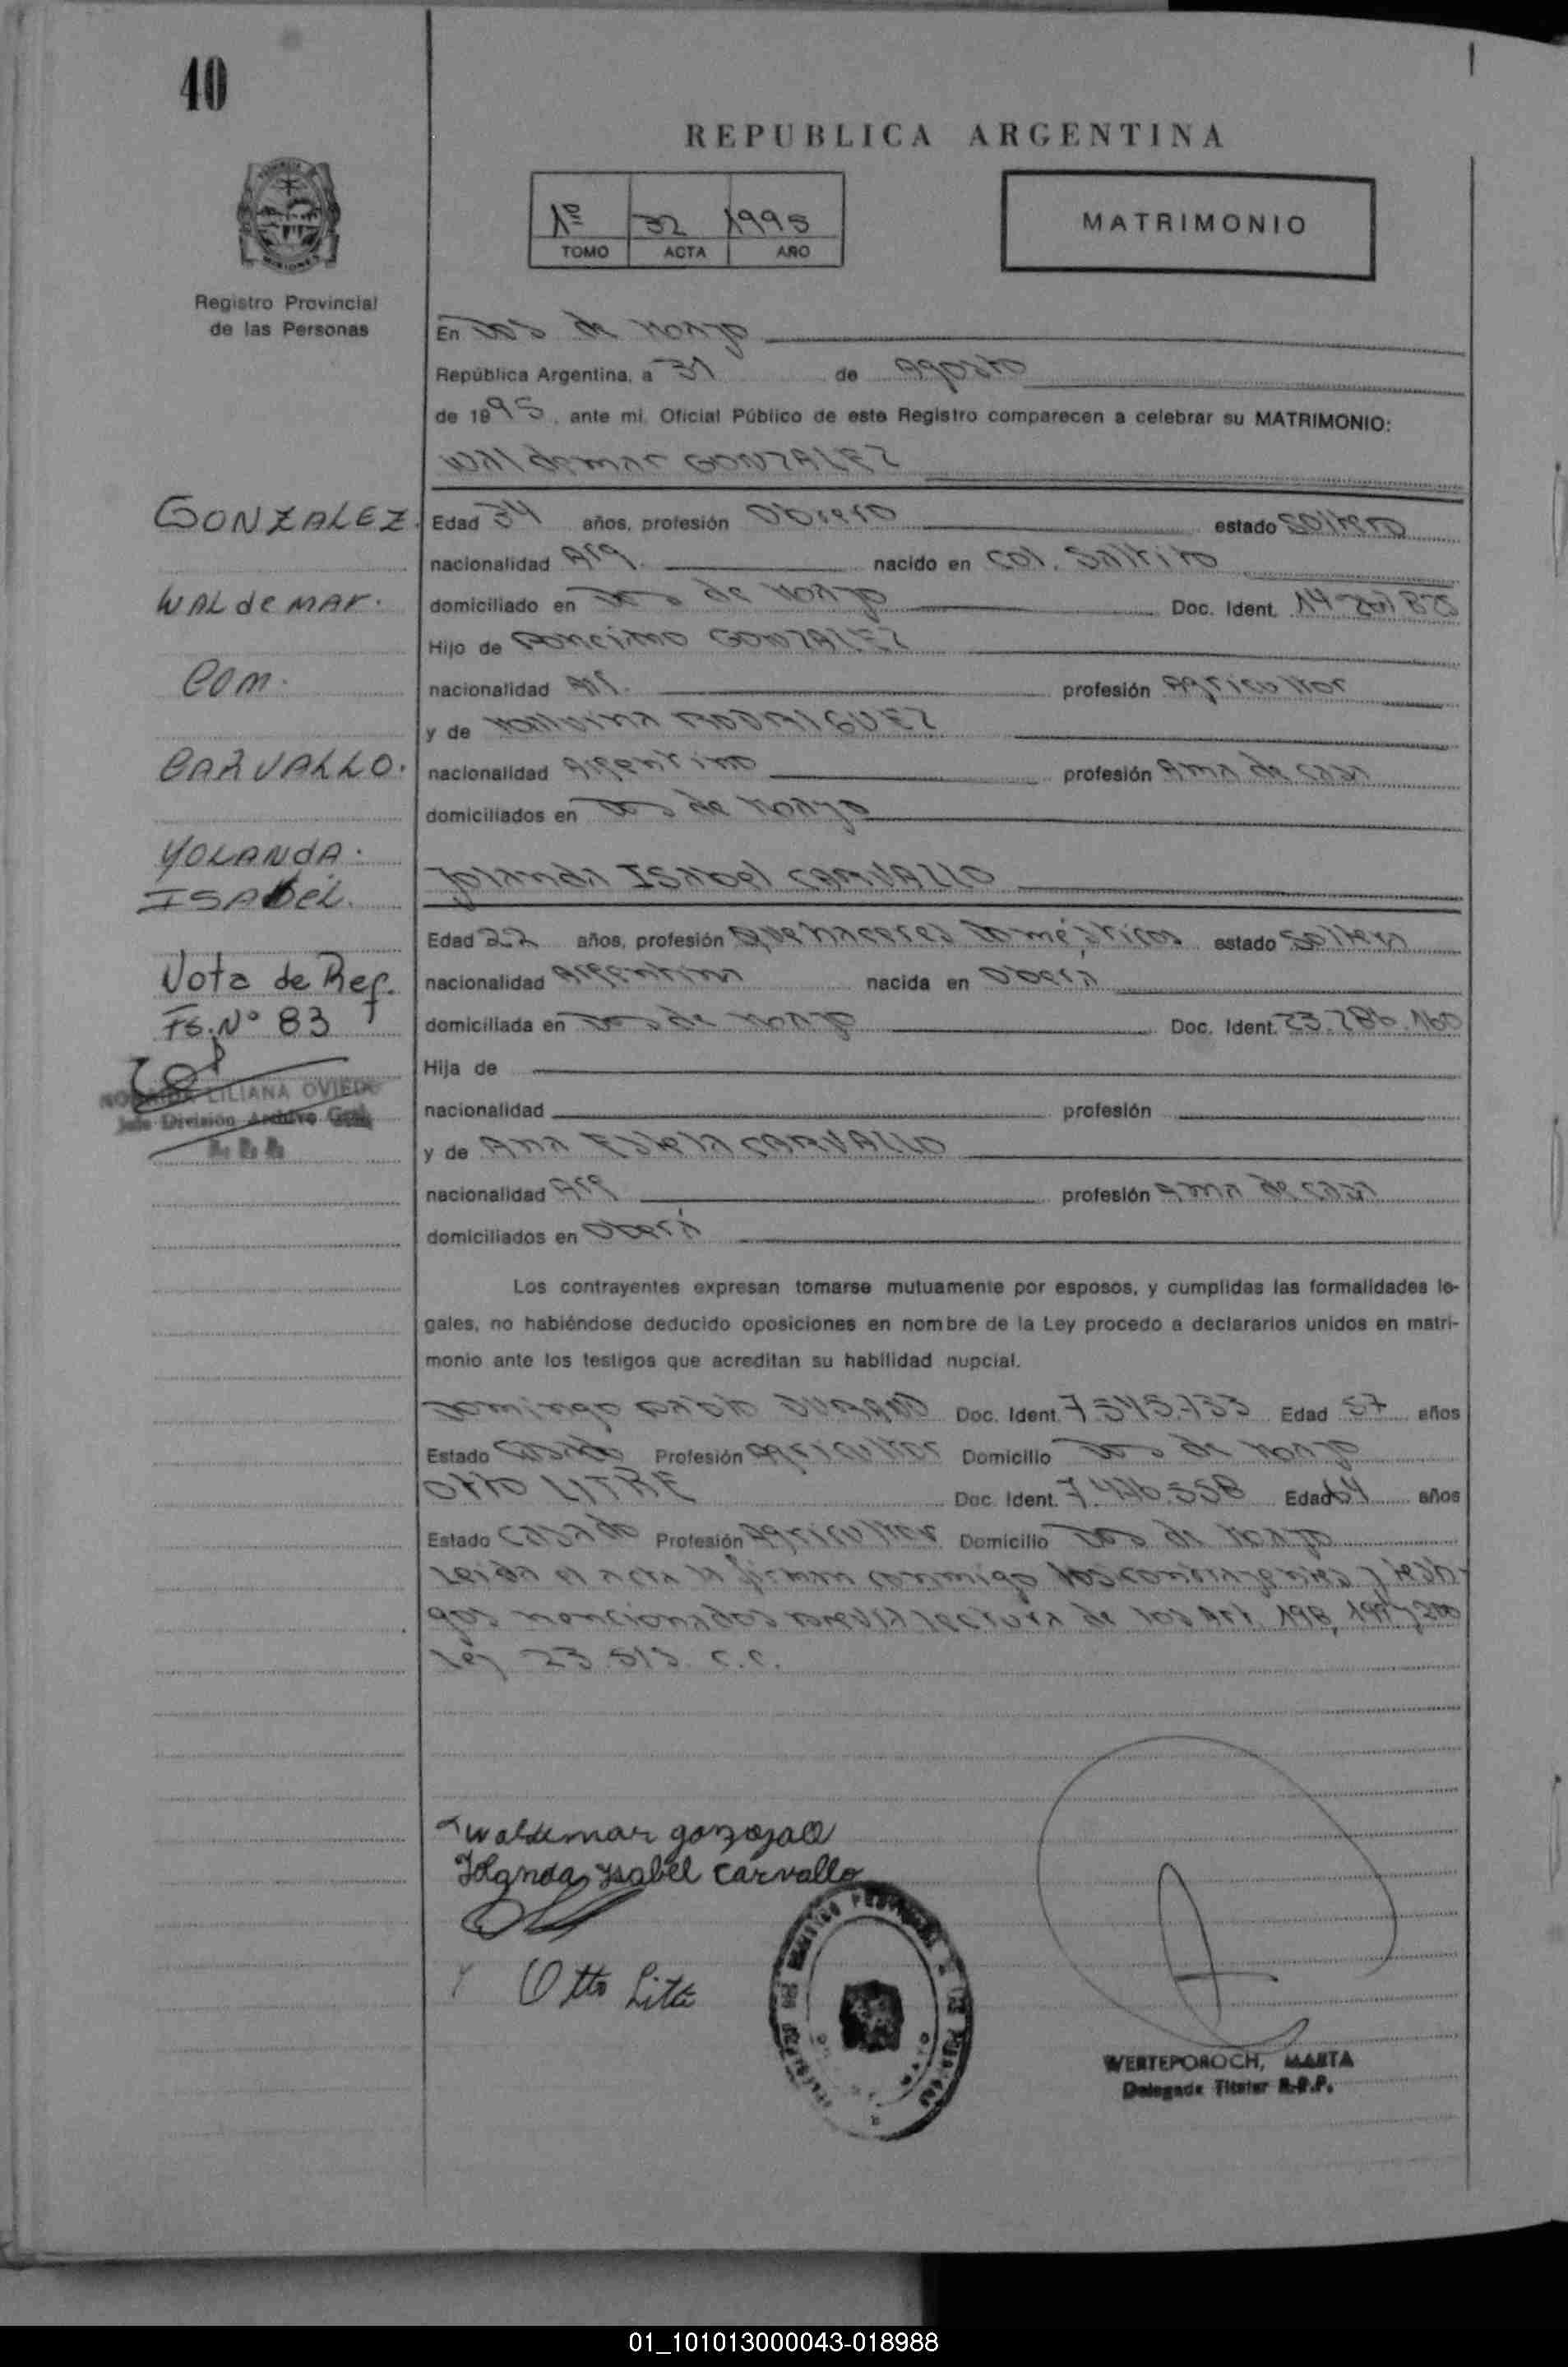 40
REPUBLICA ARGENTINA
1º 32 1995
TOMO ACTA AÑO
MATRIMONIO
Registro Provincial
de las Personas
En Dos de Mayo
República Argentina, a 31 de Agosto
de 1995, ante mi, Oficial Público de este Registro comparecen a celebrar su MATRIMONIO:
Waldemar GONZALEZ
GONZALEZ.
Edad 34 años, profesión Obrero estado Soltero
nacionalidad Arg. nacido en Col. Saltito
WALdeMAR.
domiciliado en Dos de Mayo Doc. Ident.
Hijo de GONZALEZ
Com.
nacionalidad Arg. profesión Agricultor
y de RODRIGUEZ
CARVALLO.
nacionalidad Argentino profesión Ama de casa
domiciliados en Dos de Mayo
YOLANDA.
ISABEL.
Yolanda ISABel CARVALLO
Edad 22 años, profesión Quehaceres Domésticos estado Soltera
Nota de Ref.
nacionalidad Argentina nacida en Oberá
Fs. Nº 83
domiciliada en Dos de Mayo Doc. Ident. 23.286.160
Hija de
LILIANA OVIEDO
Jefe División Archivo Gral.
nacionalidad profesión
y de Ana Estela CARVALLO
nacionalidad Arg profesión Ama de casa
domiciliados en Oberá
Los contrayentes expresan tomarse mutuamente por esposos, y cumplidas las formalidades le-
gales, no habiéndose deducido oposiciones en nombre de la Ley procedo a declararlos unidos en matri-
monio ante los testigos que acreditan su habilidad nupcial.
Domingo Doc. Ident. 7.545.733 Edad 57 años
Estado Casado Profesión Agricultor Domicilio Dos de Mayo
Otto LITKE Doc. Ident. 7.446.558 Edad 64 años
Estado Casado Profesión Agricultor Domicilio Dos de Mayo
Leida el acta la firman conmigo los contrayentes y testi-
gos mencionados previa lectura de los Art. 198, 199 y 200
Ley 23.515 C.C.
Waldemar
Yolanda Ysabel Carvallo
Otto Litke
WERTEPOROCH, MARTA
Delegada Titular R.P.P.
01_101013000043-018988